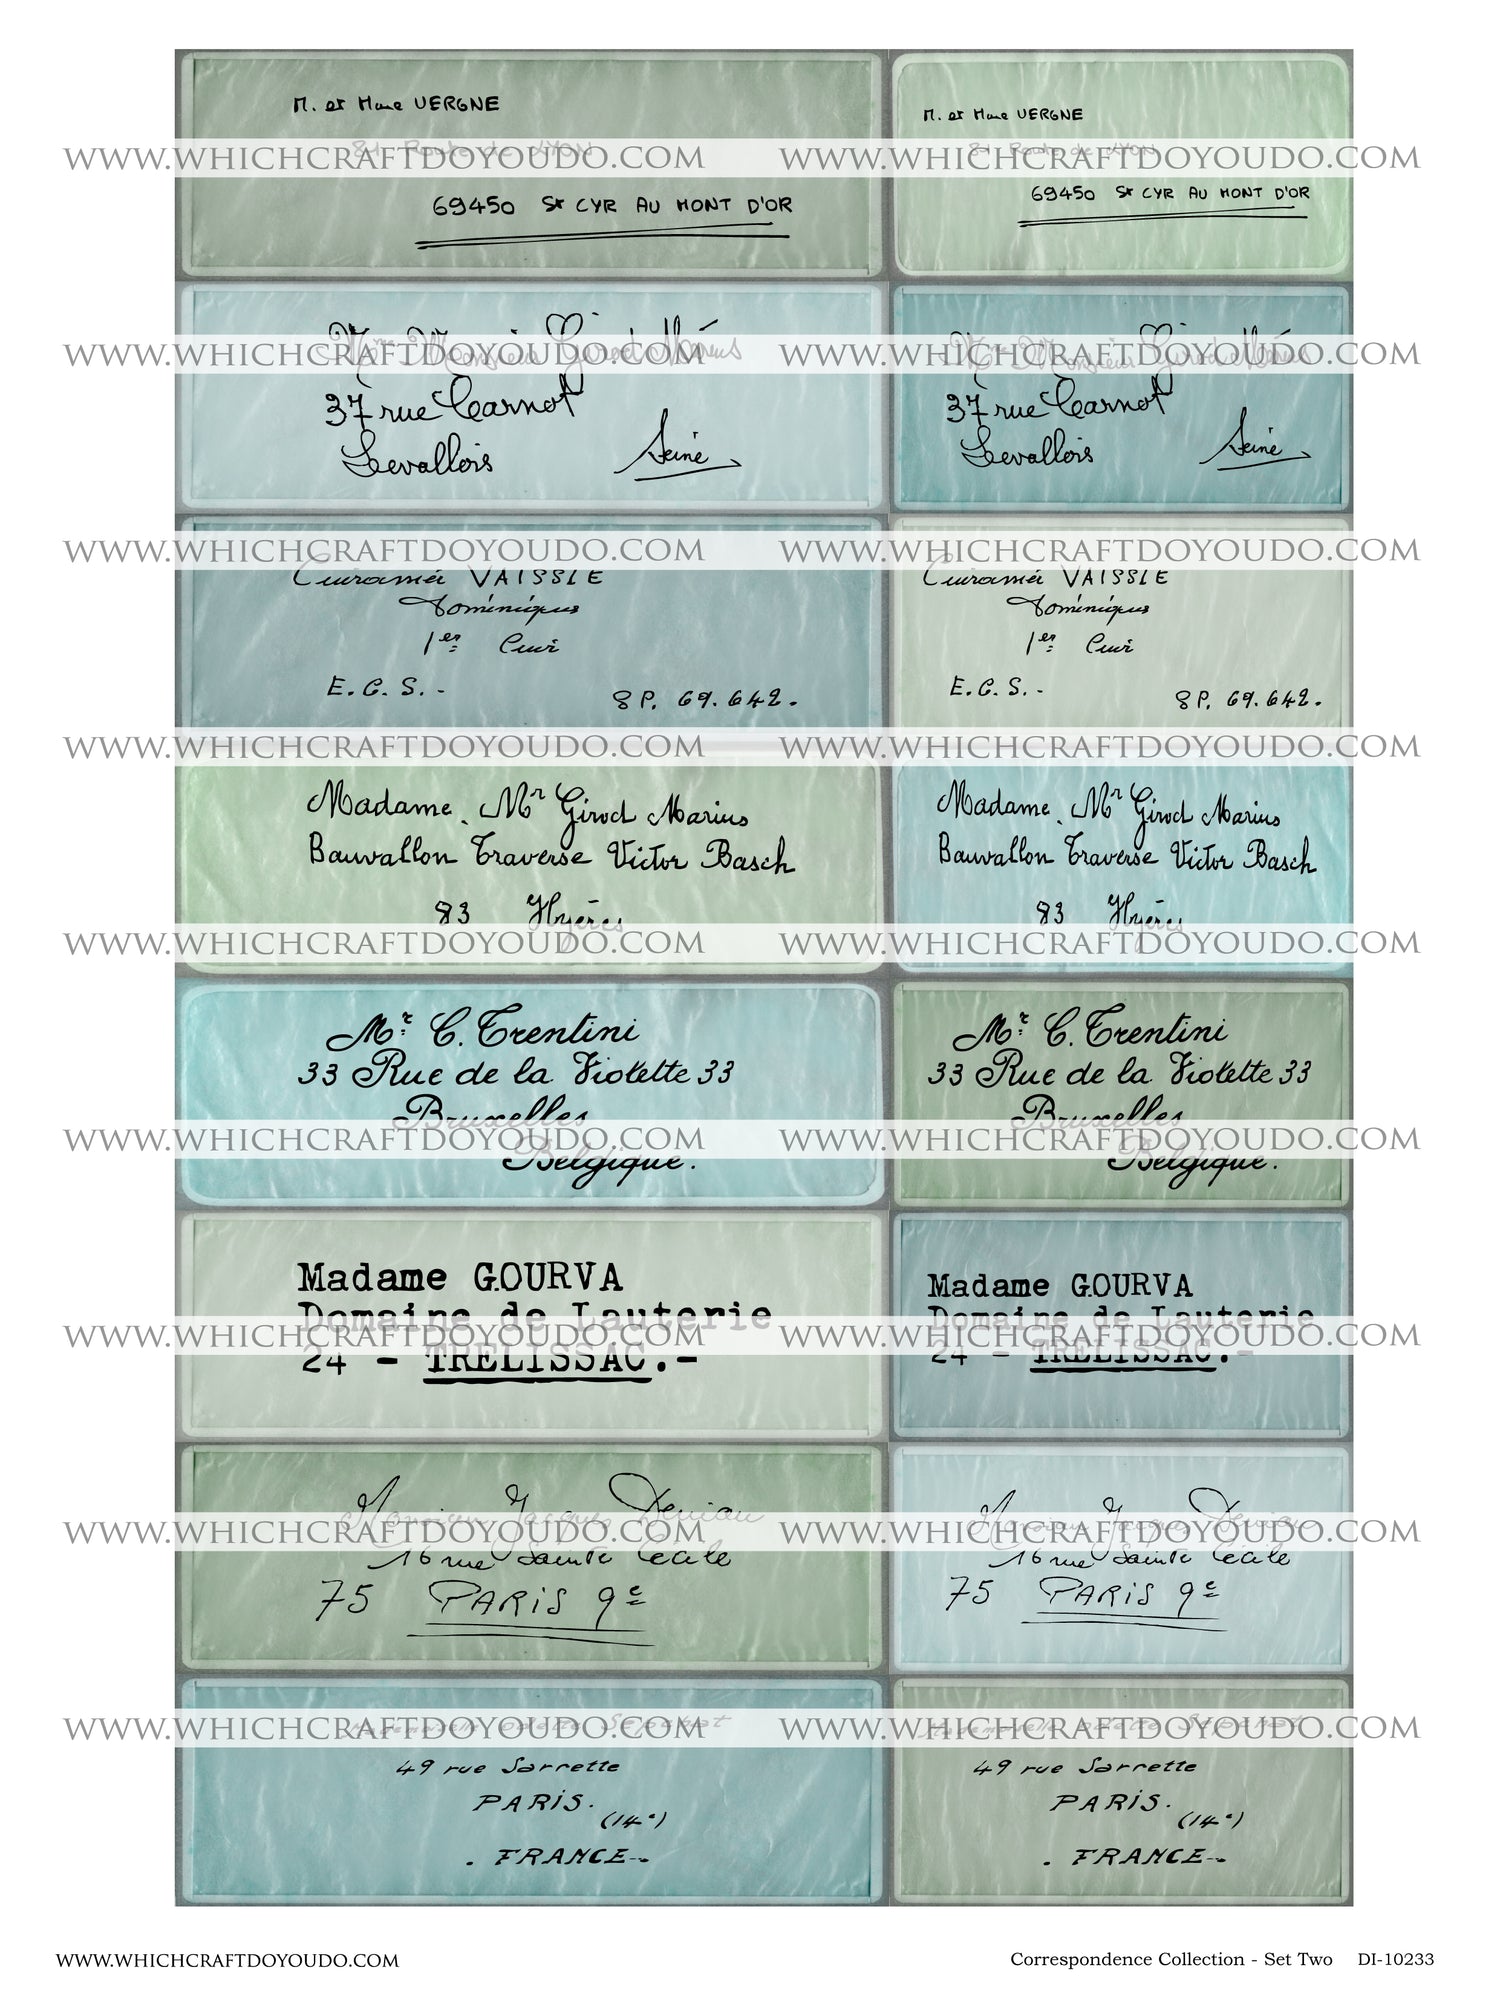 M. et Mme VERGNE
M. et Mme VERGNE
81 Route de LYON
81 Route de LYON
WWW.WHICHCRAFTDOYOUDO.COM WWW.WHICHCRAFTDOYOUDO.COM
69450 St CYR AU MONT D'OR
69450 St CYR AU MONT D'OR
Monsieur Girod Marius
Monsieur Girod Marius
WWW.WHICHCRAFTDOYOUDO.COM WWW.WHICHCRAFTDOYOUDO.COM
37 rue Carnot
37 rue Carnot
Levallois Seine
Levallois Seine
WWW.WHICHCRAFTDOYOUDO.COM WWW.WHICHCRAFTDOYOUDO.COM
VAISSIE
VAISSIE
Dominique
Dominique
1er Cuir
1er Cuir
E.C.S.-
E.C.S.-
8P. 69.642.
8P. 69.642.
WWW.WHICHCRAFTDOYOUDO.COM WWW.WHICHCRAFTDOYOUDO.COM
Madame. Mr Girod Marius
Madame. Mr Girod Marius
Bauvallon Traverse Victor Basch
Bauvallon Traverse Victor Basch
83 Hyères
83 Hyères
WWW.WHICHCRAFTDOYOUDO.COM WWW.WHICHCRAFTDOYOUDO.COM
Mr C. Trentini
Mr C. Trentini
33 Rue de la Violette 33
33 Rue de la Violette 33
Bruxelles
Bruxelles
WWW.WHICHCRAFTDOYOUDO.COM WWW.WHICHCRAFTDOYOUDO.COM
Belgique.
Belgique.
Madame GOURVA
Madame GOURVA
Domaine de Lauterie
Domaine de Lauterie
WWW.WHICHCRAFTDOYOUDO.COM WWW.WHICHCRAFTDOYOUDO.COM
24 - TRELISSAC.-
24 - TRELISSAC.-
Monsieur Jacques
Monsieur Jacques
WWW.WHICHCRAFTDOYOUDO.COM WWW.WHICHCRAFTDOYOUDO.COM
16 rue Sainte Cécile
16 rue Sainte Cécile
75 PARIS 9e
75 PARIS 9e
Mademoiselle Odette
Mademoiselle Odette
WWW.WHICHCRAFTDOYOUDO.COM WWW.WHICHCRAFTDOYOUDO.COM
49 rue Sarrette
49 rue Sarrette
PARIS.
PARIS.
(14e)
(14e)
. FRANCE-.
. FRANCE-.
WWW.WHICHCRAFTDOYOUDO.COM
Correspondence Collection - Set Two DI-10233